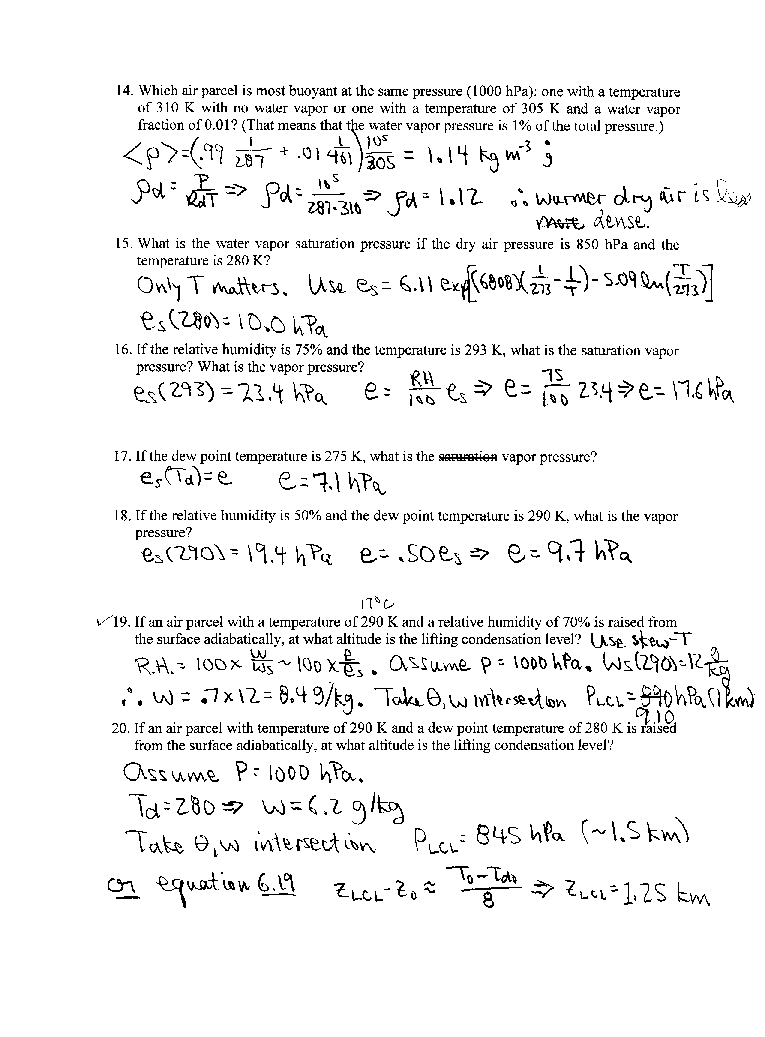 14. Which air parcel is most buoyant at the same pressure (1000 hPa): one with a temperature
of 310 K with no water vapor or one with a temperature of 305 K and a water vapor
fraction of 0.01? (That means that the water vapor pressure is 1% of the total pressure.)
<ρ>=(.99 1/287 + .01 1/461) 10⁵/305 = 1.14 kg m⁻³ ;
ρd = P/RdT ⇒ ρd = 10⁵/287·310 ⇒ ρd = 1.12 ∴ warmer dry air is less
more dense.
15. What is the water vapor saturation pressure if the dry air pressure is 850 hPa and the
temperature is 280 K?
Only T matters. Use es = 6.11 exp[(6808)(1/273 - 1/T) - 5.09 ln(T/273)]
es(280) = 10.0 hPa
16. If the relative humidity is 75% and the temperature is 293 K, what is the saturation vapor
pressure? What is the vapor pressure?
es(293) = 23.4 hPa e = RH/100 es ⇒ e = 75/100 23.4 ⇒ e = 17.6 hPa
17. If the dew point temperature is 275 K, what is the saturation vapor pressure?
es(Td) = e e = 7.1 hPa
18. If the relative humidity is 50% and the dew point temperature is 290 K, what is the vapor
pressure?
es(290) = 19.4 hPa e = .50es ⇒ e = 9.7 hPa
17°C
✓19. If an air parcel with a temperature of 290 K and a relative humidity of 70% is raised from
the surface adiabatically, at what altitude is the lifting condensation level? Use skew-T
R.H. = 100 x w/ws ~ 100 x e/es. Assume p = 1000 hPa. Ws(290)=12 g/kg
∴ w = .7 x 12 = 8.4 g/kg. Take θ, w intersection PLCL = 890 hPa (1 km)
910
20. If an air parcel with temperature of 290 K and a dew point temperature of 280 K is raised
from the surface adiabatically, at what altitude is the lifting condensation level?
Assume P = 1000 hPa.
Td = 280 ⇒ w = 6.2 g/kg
Take θ, w intersection PLCL = 845 hPa (~1.5 km)
or equation 6.19 ZLCL - Z0 ≈ T0 - Td0/8 ⇒ ZLCL = 1.25 km